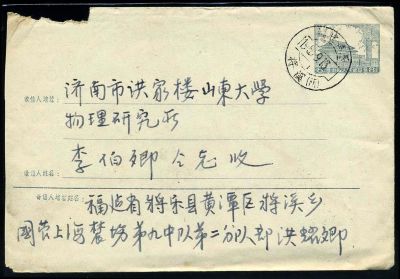 收信人地址：
济南市洪家楼山东大学
物理研究所
收信人姓名：
李伯卿 仝志 收
寄信人地址姓名：
福建省将乐县黄潭区将溪乡
国营上海农场第九中队第二分队部 洪 卿